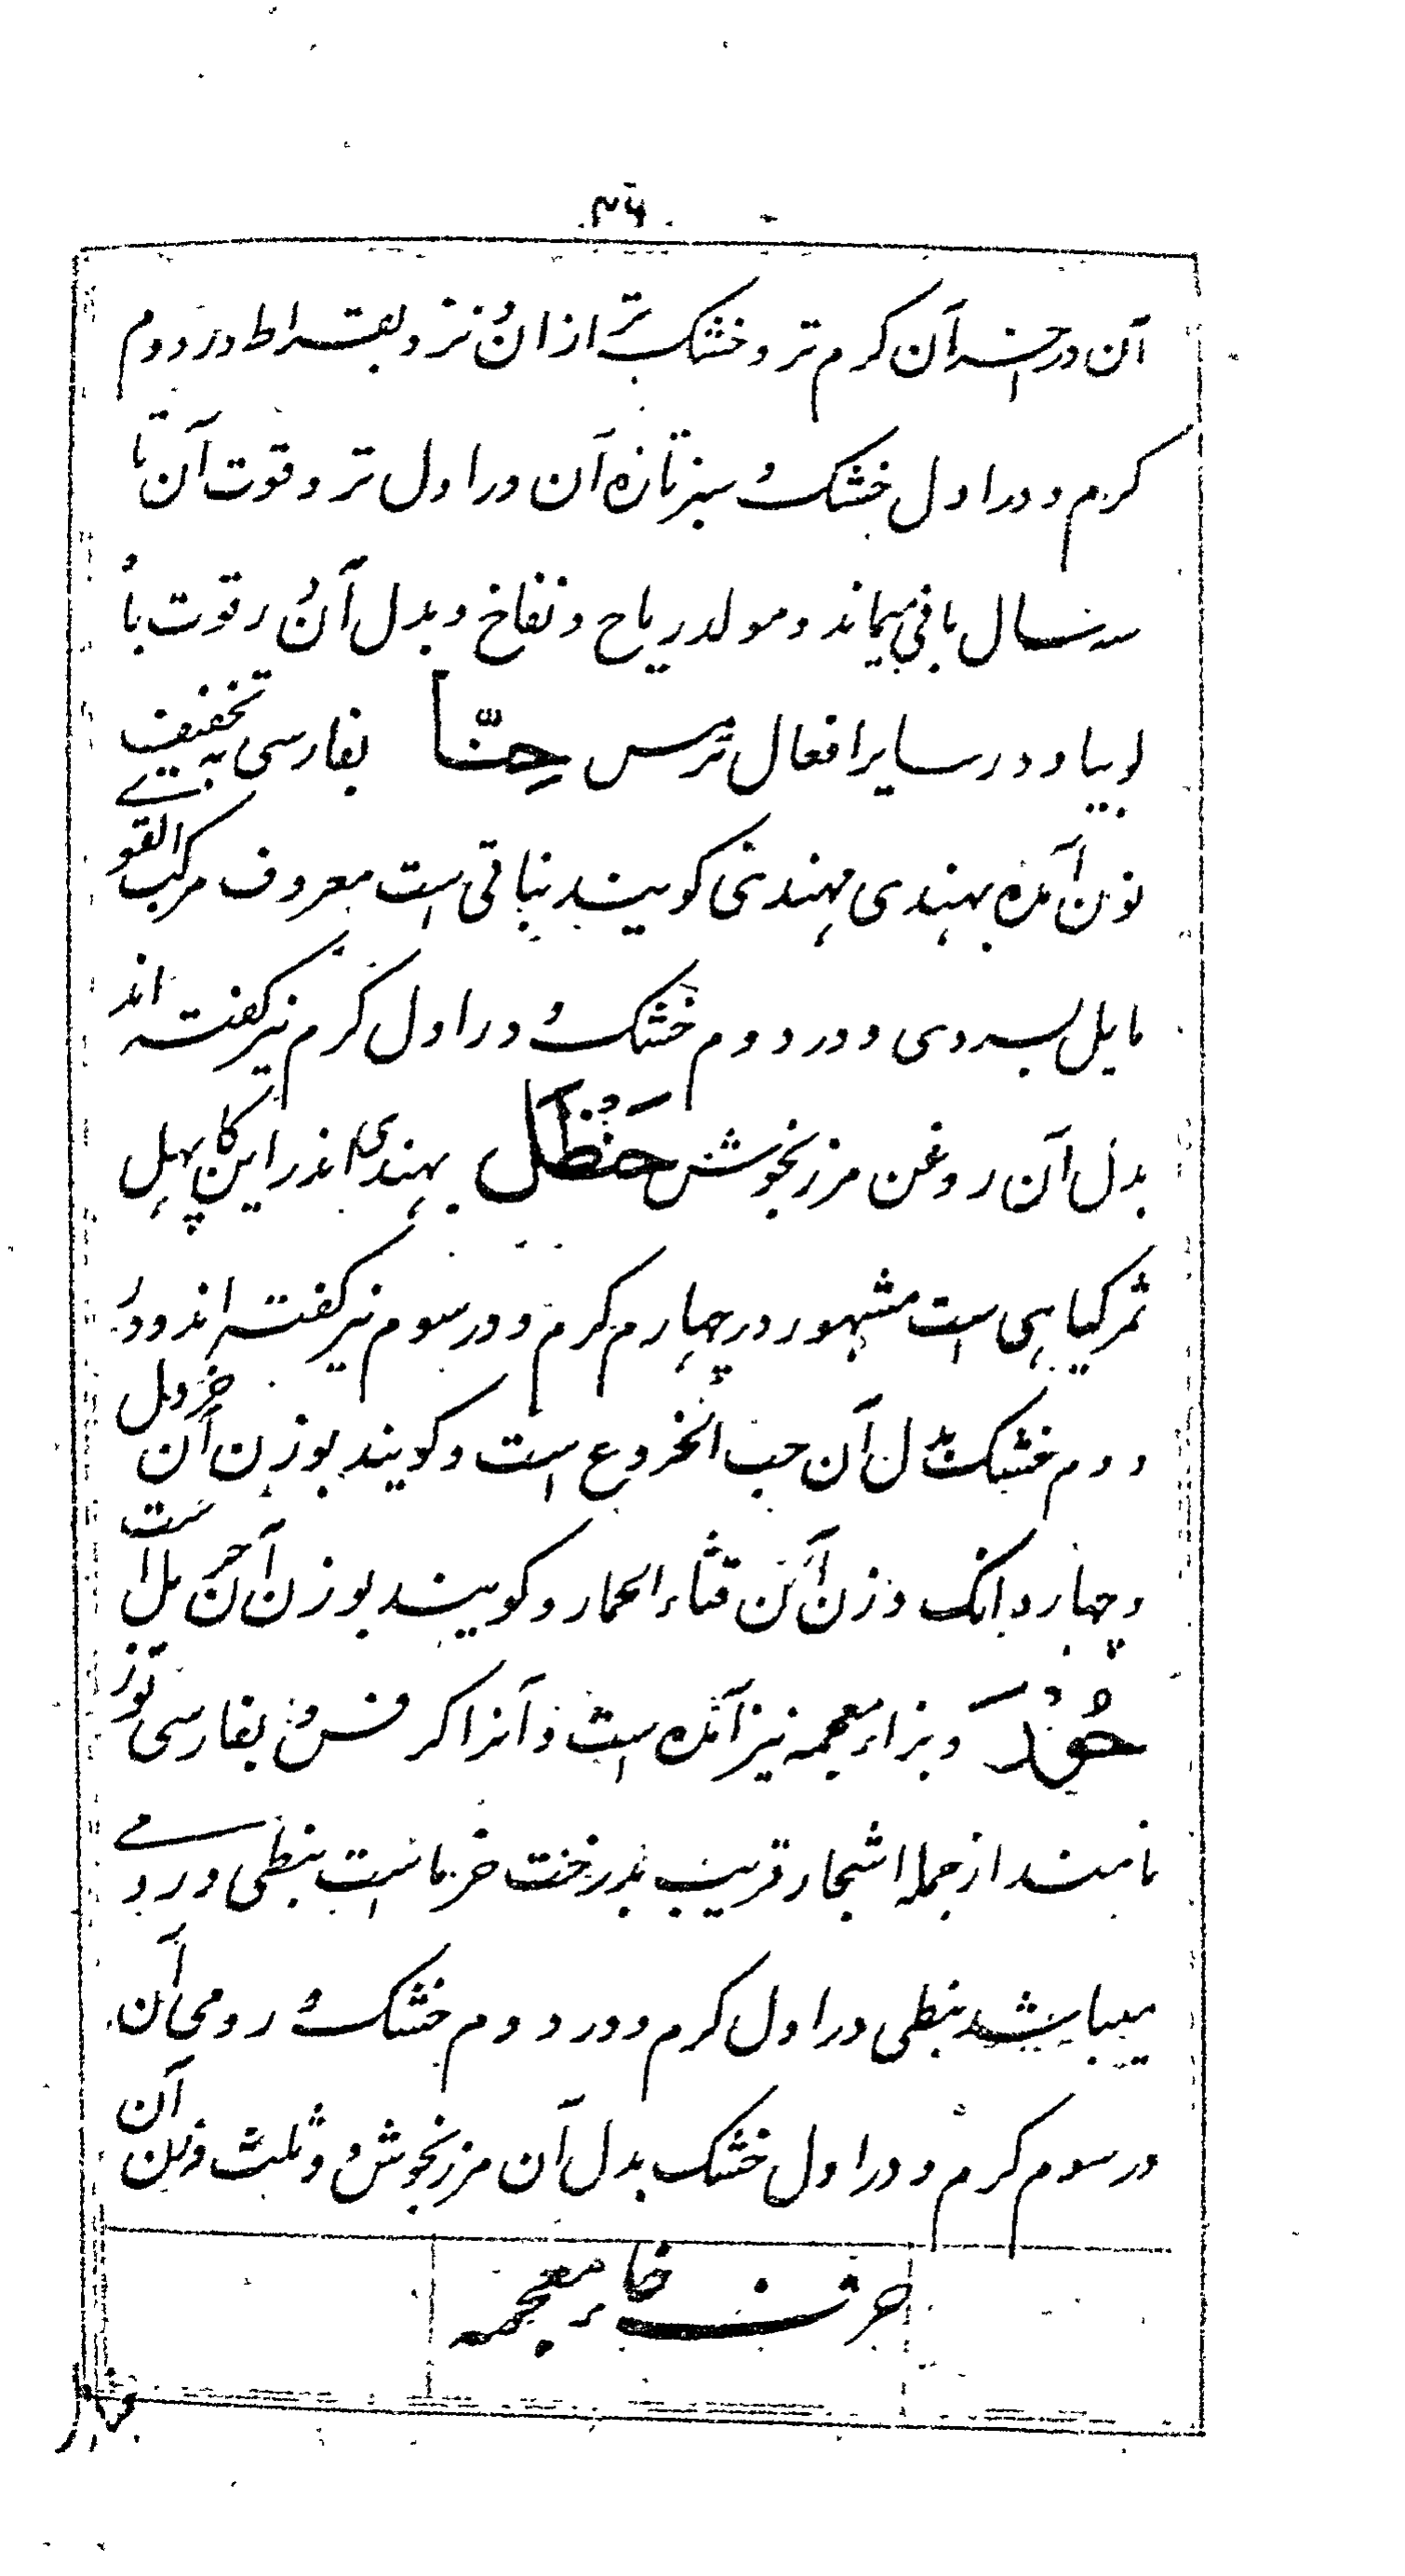 ۳۶
آن در آخر آن گرم تر و خشک تر از ان و نزد بقراط در دوم
گرم و در اول خشک و سبز تازه آن در اول تر و قوت آن تا
سه سال باقی میماند و مولد ریاح و نفاخ و بدل آن در قوت باه
لوبیا و در سایر افعال ترمس حِنّا بفارسی به تخفیف
نون آمده بهندی مهندی گویند نباتی است معروف مرکب القوے
مایل بسردی و در دوم خشک و در اول گرم نیز گفته اند
بدل آن روغن مرزنجوش حَنْظَل بهندی اندراین کا پهل
ثمر گیاهی است مشهور در چهارم گرم و در سوم نیز گفته اند و در
دوم خشک بدل آن حب الخروع است و گویند بوزن آن خردل
و چهار دانگ وزن آن قثاء الحمار و گویند بوزن آن حرمل است
حُوْر و بزاء معجمه نیز آمده است و آنرا گر فس و بفارسی توز
نامند از جمله اشجار قریب بدرخت خرما است نبطی و رومے
میباشد نبطی در اول گرم و در دوم خشک و رومی آن
در سوم گرم و در اول خشک بدل آن مرزنجوش و ثلث وزن آن
حرف خاء معجمه